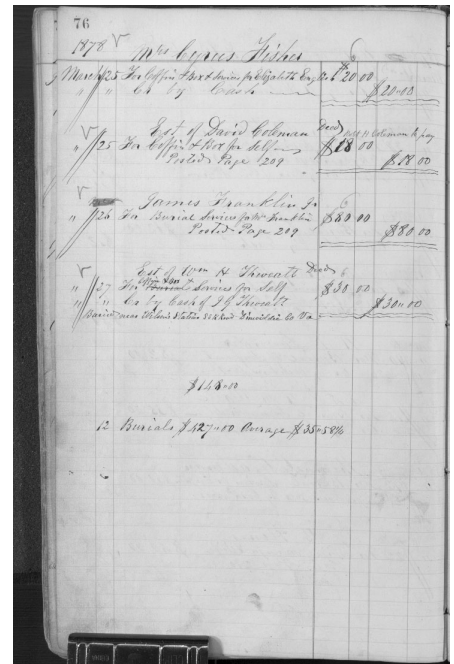 76
1878 √ Mrs Cyrus Fisher
March 25 For Coffin & Box & Services for Elizabeth $20.00
" " Cr by Cash $20.00
√ Est of David Coleman Decd
" 25 For Coffin & Box for Self $18.00
Posted Page 209 $18.00
√ James Franklin Jr
" 26 For Burial Services for Wm Franklin $80.00
Posted Page 209 $80.00
√ Est of Wm H Thweatt Decd
" 27 For Coffin & Box Burial Services for Self $30.00
" " Cr by Cash of J G Thweatt $30.00
Buried near Station Dinwiddie Co Va
$148.00
12 Burials $427.00 Average $35.58